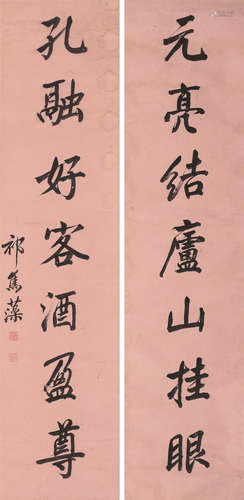 元亮结廬山挂眼
孔融好客酒盈尊
祁寯藻